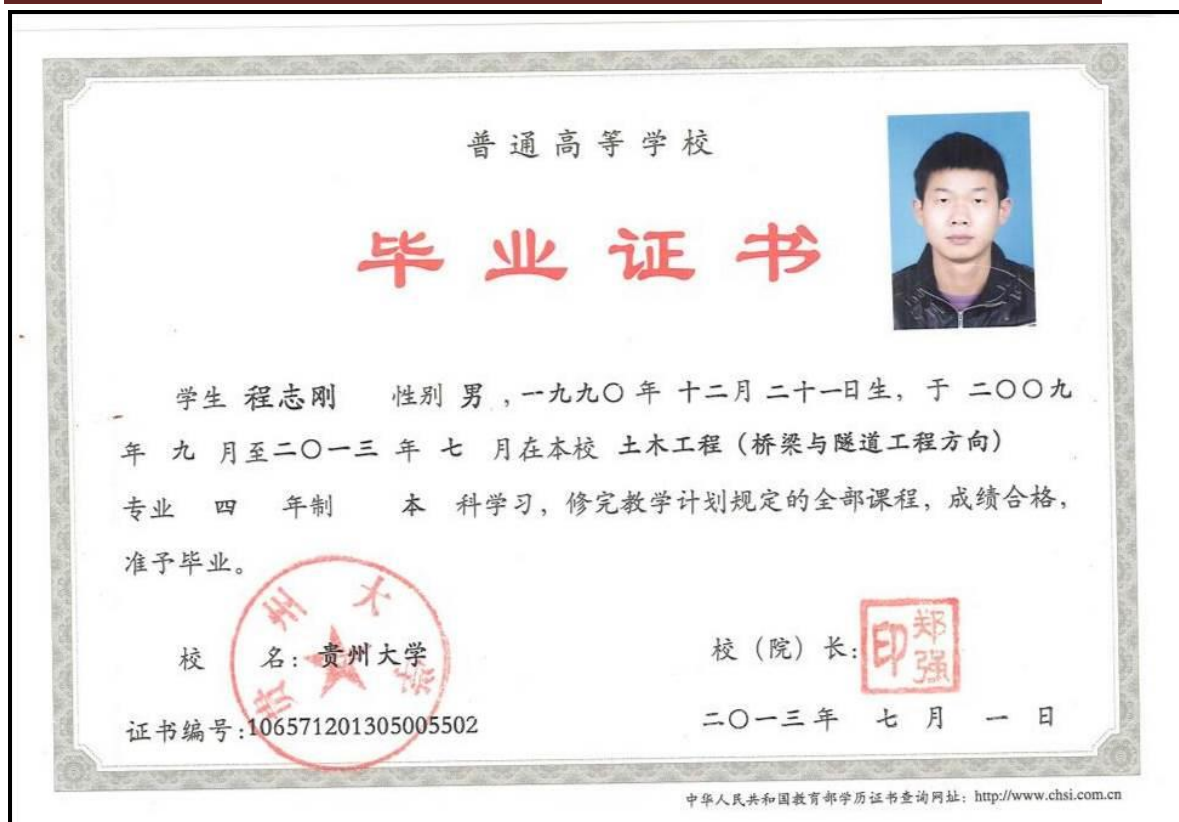 普通高等学校
毕业证书
学生 程志刚 性别 男，一九九〇年 十二月 二十一日生，于 二〇〇九
年 九 月至二〇一三 年 七 月在本校 土木工程（桥梁与隧道工程方向）
专业 四 年制 本 科学习，修完教学计划规定的全部课程，成绩合格，
准予毕业。
贵州大学
校 名：贵州大学
校（院）长：
郑强印
证书编号：106571201305005502
二〇一三年 七 月 一 日
中华人民共和国教育部学历证书查询网址：http://www.chsi.com.cn